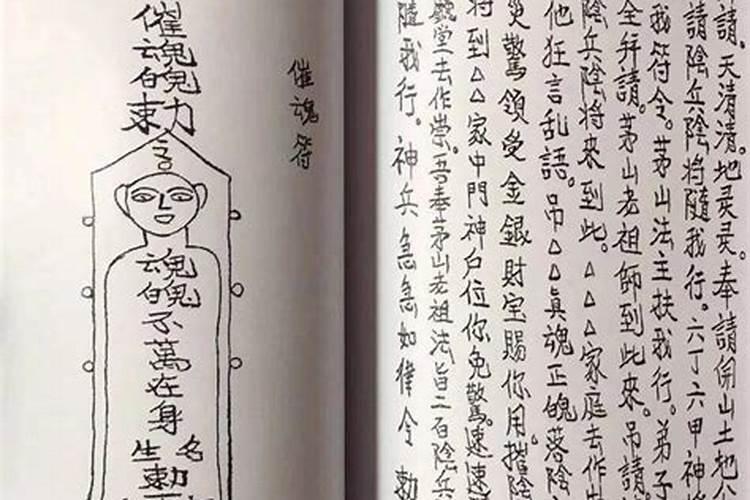 請。天清清。地灵灵。奉請開山土地公
請陰兵陰將隨我行。六丁六甲神將
我符令。茅山法主扶我行。弟子
全幷請。茅山老祖師到此來。吊請
陰兵陰将來到此。△△△家庭去作
他狂言乱語。吊△△真魂正魄落陰
災驚領受金銀財宝賜你用。摧陰
将到△△家中門神户位你免驚。速速
堂去作祟。吾奉茅山老祖法旨二百陰兵
隨我行。神兵急急如律令 勅
催魂符
催魂魄勅
魂魄不萬在身
名
生
勅